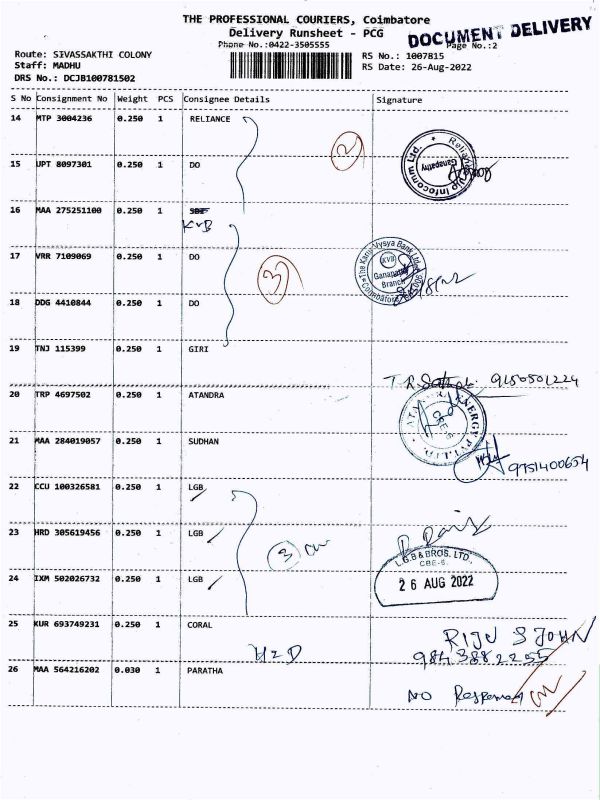 THE PROFESSIONAL COURIERS, Coimbatore
Delivery Runsheet - PCG
DOCUMENT DELIVERY
Phone No.:0422-3505555
Page No.:2
Route: SIVASSAKTHI COLONY
RS No.: 1007815
Staff: MADHU
RS Date: 26-Aug-2022
DRS No.: DCJB100781502
S No Consignment No Weight PCS Consignee Details Signature
14 MTP 3004236 0.250 1 RELIANCE
2
Ganapathy
15 UPT 8097301 0.250 1 DO
16 MAA 275251100 0.250 1
KVB
17 VRR 7109069 0.250 1 DO
3
The Karur Vysya Bank Ltd.
KVB
Ganapathy
Branch
18 DDG 4410844 0.250 1 DO
19 TNJ 115399 0.250 1 GIRI
9150501224
20 TRP 4697502 0.250 1 ATANDRA
ATANDRA ENERGY PVT. LTD.
CBE-6
21 MAA 284019057 0.250 1 SUDHAN
9751400654
22 CCU 100326581 0.250 1 LGB
23 HRD 305619456 0.250 1 LGB
3
L.G.B & BROS. LTD.,
CBE-6.
24 IXM 502026732 0.250 1 LGB
26 AUG 2022
25 KUR 693749231 0.250 1 CORAL
RIJU S JOHN
9843882255
26 MAA 564216202 0.030 1 PARATHA
NO